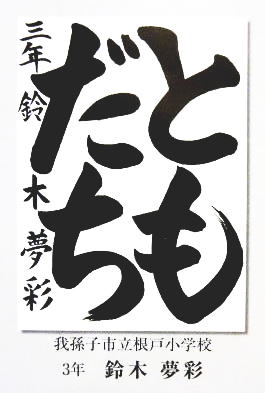 とも
だち
三年 鈴木 夢彩
我孫子市立根戸小学校
3年 鈴木 夢彩